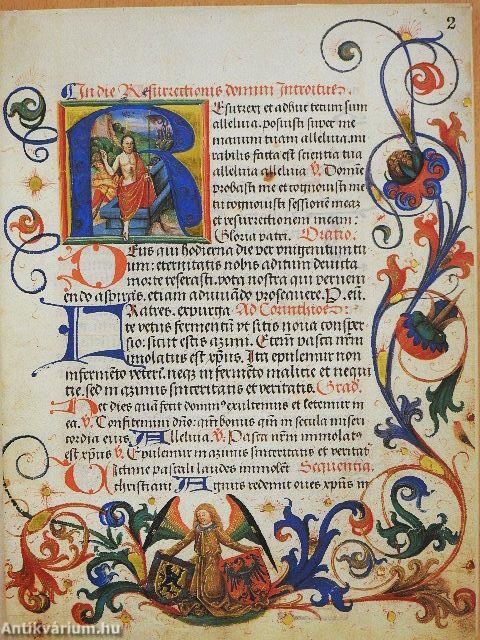 2
In die Resurrectionis domini Introitus.
Resurrexi et adhuc tecum sum
alleluia. posuisti super me
manum tuam alleluia. mi
rabilis facta est scientia tua
alleluia alleluia V. Domine
probasti me et cognouisti me
tu cognouisti sessionem meaz
et resurrectionem meam.
Gloria patri. Oratio.
Deus qui hodierna die per vnigenitum tu
um: eternitatis nobis aditum deuicta
morte reserasti. vota nostra que preueni
endo aspiras. etiam adiuuando prosequere. P. eu.
Fratres. expurga Ad Corinthios
te vetus fermentum vt sitis noua consper
sio: sicut estis azimi. Etenim pasca nrm
immolatus est xpus. Itaq epulemur non
in fermento veteri. neq in fermento malicie et nequi
tie. sed in azimis sinceritatis et veritatis. Grad.
Hec dies quā fecit dominus exultemus et letemur in
ea. V. Confitemini dno: qm bonus qm in secula miseri
cordia eius. Alleluia V. Pasca nrm immolatus
est xpus V. Epulemur in azimis sinceritatis et veritatis
Uictime pascali laudes immolent Sequentia
christiani. Agnus redemit oues xpus in
Antikvárium.hu